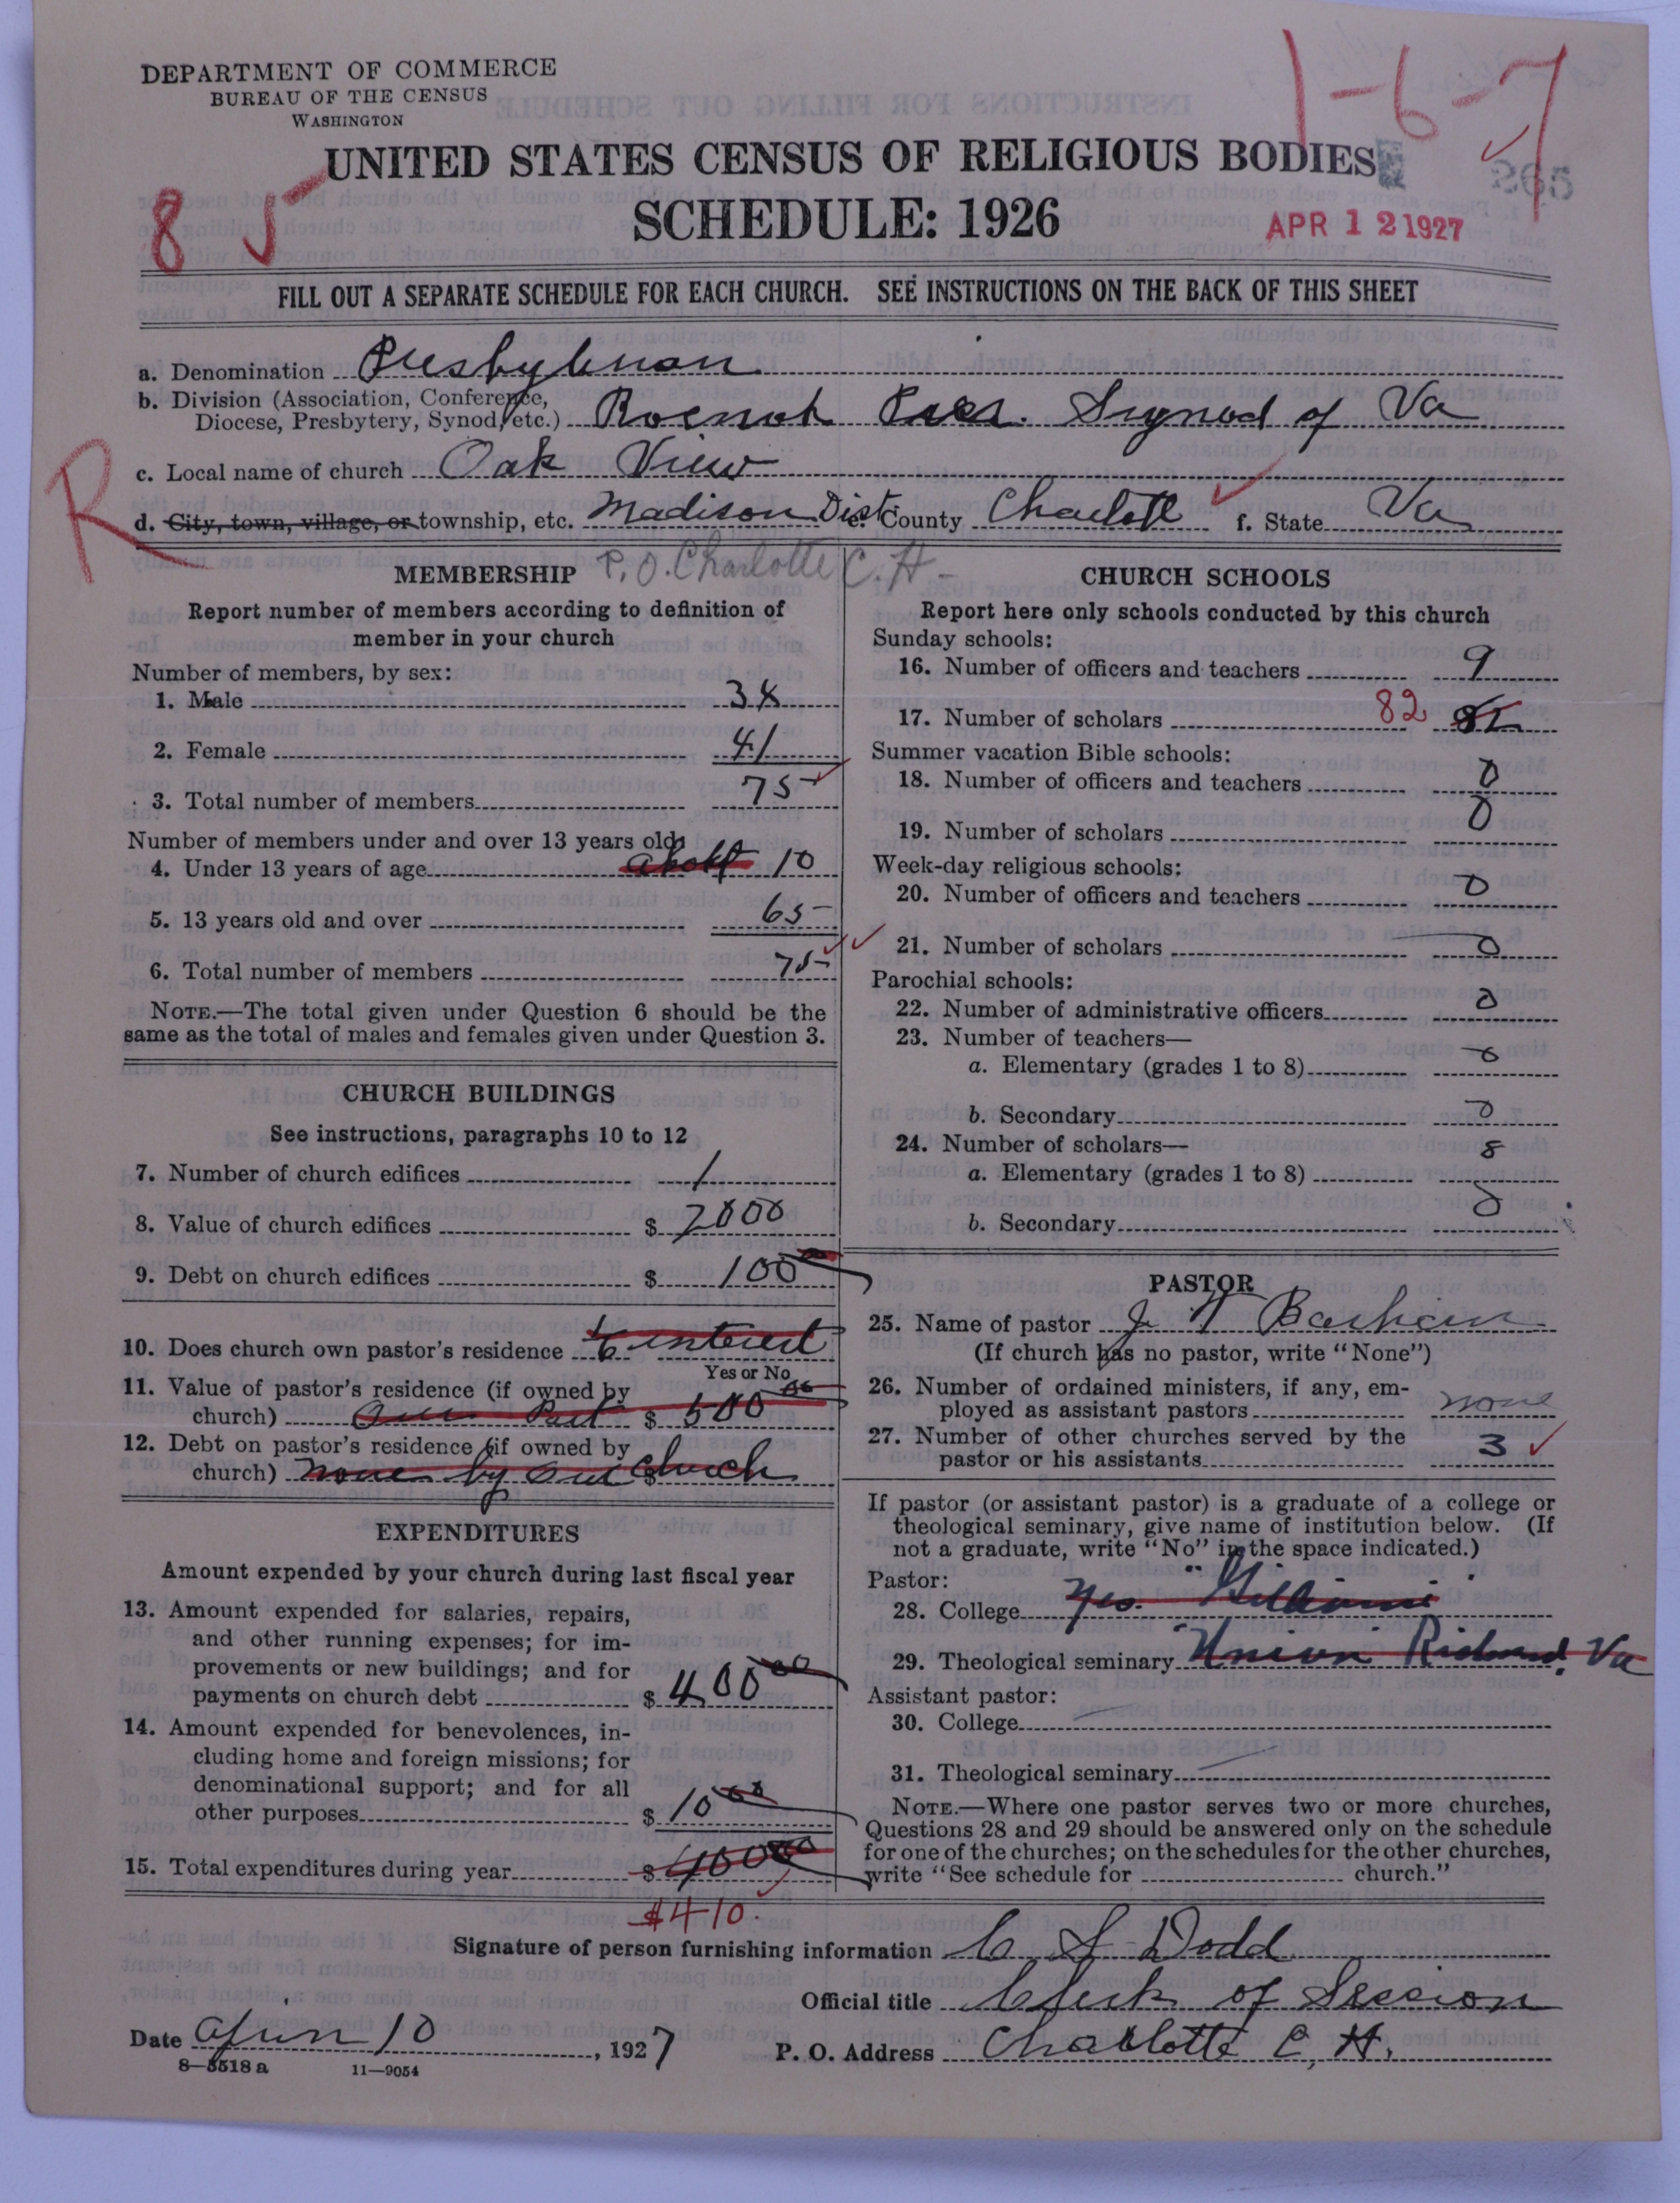 DEPARTMENT OF COMMERCE
BUREAU OF THE CENSUS
WASHINGTON
1-6-7
UNITED STATES CENSUS OF RELIGIOUS BODIES
8 5
SCHEDULE: 1926
APR 12 1927
FILL OUT A SEPARATE SCHEDULE FOR EACH CHURCH. SEE INSTRUCTIONS ON THE BACK OF THIS SHEET
a. Denomination Presbyterian
b. Division (Association, Conference,
Diocese, Presbytery, Synod, etc.) Roenok Pres. Synod of Va
R
c. Local name of church Oak View
d. City, town, village, or township, etc. Madison Dist e. County Charlott f. State Va
P.O. Charlotte C. H.
MEMBERSHIP
Report number of members according to definition of
member in your church
Number of members, by sex:
1. Male 34
2. Female 41
3. Total number of members 75
Number of members under and over 13 years old:
4. Under 13 years of age about 10
5. 13 years old and over 65
6. Total number of members 75
NOTE.—The total given under Question 6 should be the
same as the total of males and females given under Question 3.
CHURCH BUILDINGS
See instructions, paragraphs 10 to 12
7. Number of church edifices 1
8. Value of church edifices $ 2000
9. Debt on church edifices $ 100 00
10. Does church own pastor's residence interest
Yes or No
11. Value of pastor's residence (if owned by
church) Our Part $ 500 00
12. Debt on pastor's residence (if owned by
church) none by our church $
EXPENDITURES
Amount expended by your church during last fiscal year
13. Amount expended for salaries, repairs,
and other running expenses; for im-
provements or new buildings; and for
payments on church debt $ 400 00
14. Amount expended for benevolences, in-
cluding home and foreign missions; for
denominational support; and for all
other purposes $ 10 00
15. Total expenditures during year $ 400 00
$410.
CHURCH SCHOOLS
Report here only schools conducted by this church
Sunday schools:
16. Number of officers and teachers 9
17. Number of scholars 82 82
Summer vacation Bible schools:
18. Number of officers and teachers 0
19. Number of scholars 0
Week-day religious schools:
20. Number of officers and teachers 0
21. Number of scholars 0
Parochial schools:
22. Number of administrative officers 0
23. Number of teachers—
a. Elementary (grades 1 to 8) 0
b. Secondary 0
24. Number of scholars—
a. Elementary (grades 1 to 8) 8
b. Secondary 0
PASTOR
25. Name of pastor J
(If church has no pastor, write "None")
26. Number of ordained ministers, if any, em-
ployed as assistant pastors none
27. Number of other churches served by the
pastor or his assistants 3
If pastor (or assistant pastor) is a graduate of a college or
theological seminary, give name of institution below. (If
not a graduate, write "No" in the space indicated.)
Pastor:
28. College Yes.
29. Theological seminary "Union" Richmond, Va
Assistant pastor:
30. College
31. Theological seminary
NOTE.—Where one pastor serves two or more churches,
Questions 28 and 29 should be answered only on the schedule
for one of the churches; on the schedules for the other churches,
write "See schedule for church."
Signature of person furnishing information C S Dodd
Official title Clerk of Session
Date 10, 1927
P. O. Address Charlotte C, H.
8—5518 a 11—9054